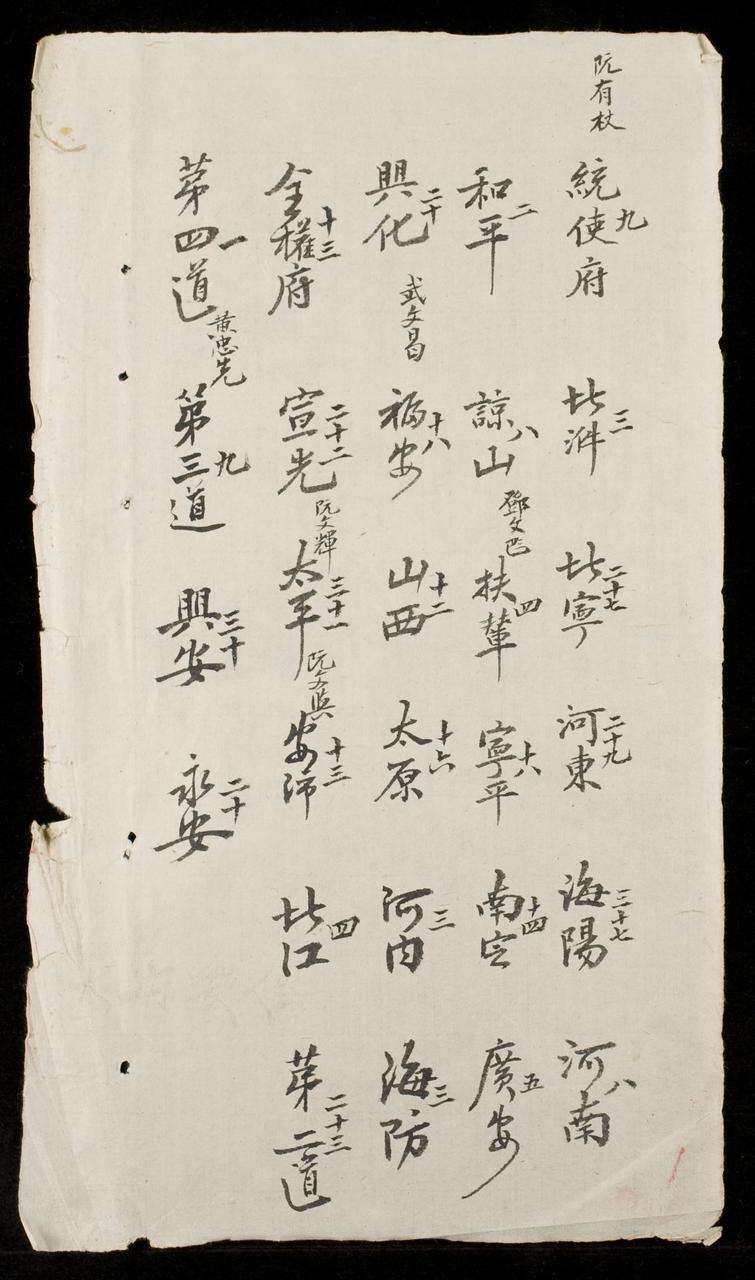 阮有杖
統使府 九
北泮 三
北寧 二十七
河東 二十九
海陽 三十七
河南 八
和平 二
諒山 八
鄧文
扶輦 四
寧平 十八
南定 十四
廣安 五
興化 二十
武文昌
福安 十八
山西 十二
太原 十六
河內 三
海防 三
全權府 十三
宣光 二十二
阮文輝
太平 三十一
阮文
安沛 十三
北江 四
第二道 二十三
第四道 一
黄忠先
第三道 九
興安 三十
永安 二十